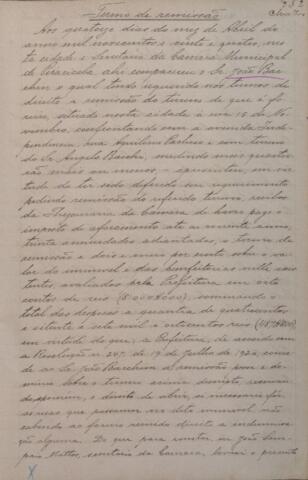 282
Termo de remissão
Aos quatorze dias do mez de Abril do
anno mil novecentos e vinte e quatro, nes
ta cidade e Secretaria da Camara Municipal
de Piracicaba ahi compareceu o Sr. João Bac
chin o qual tendo requerido nos termos de
direito a remissão do terreno de que é fo
reiro, situado nesta cidade á rua 15 de No
vembro, confrontando com a avenida Inde
pendencia, rua Aquilino Pacheco e com terreno
do Sr. Angelo Bacchi, medindo uma quartei
rão mais ou menos, e apresentou, em vir
tude de ter sido deferido seu requerimento
pedindo remissão do referido terreno, recibo
da Thesouraria da Camara de haver pago o
imposto de aforamento até o corrente anno,
trinta annuidades adiantadas, o termo de
remissão e dois e meio por cento sobre o va
lor do immovel e das bemfeitorias nelle exis
tentes, avaliados pela Prefeitura em oito
contos de reis (8:000$000), sommando o
total das despesas a quantia de quatrocentos
e setenta e sete mil e oitocentos reis
em virtude do que, a Prefeitura, de accordo com
a Resolução n. 247, de 19 de Julho de 1920, conce
de ao Sr. João Bacchin a remissão
minio sobre o terreno acima descripto, reservan
do-se porem, o direito de abrir, se necessario for,
as ruas que passarem no dito immovel não
cabendo ao foreiro remido direito a indemnisa
ção alguma. Do que, para constar eu João Sam
paio Mattos, secretario da Camara, lavrei o presente